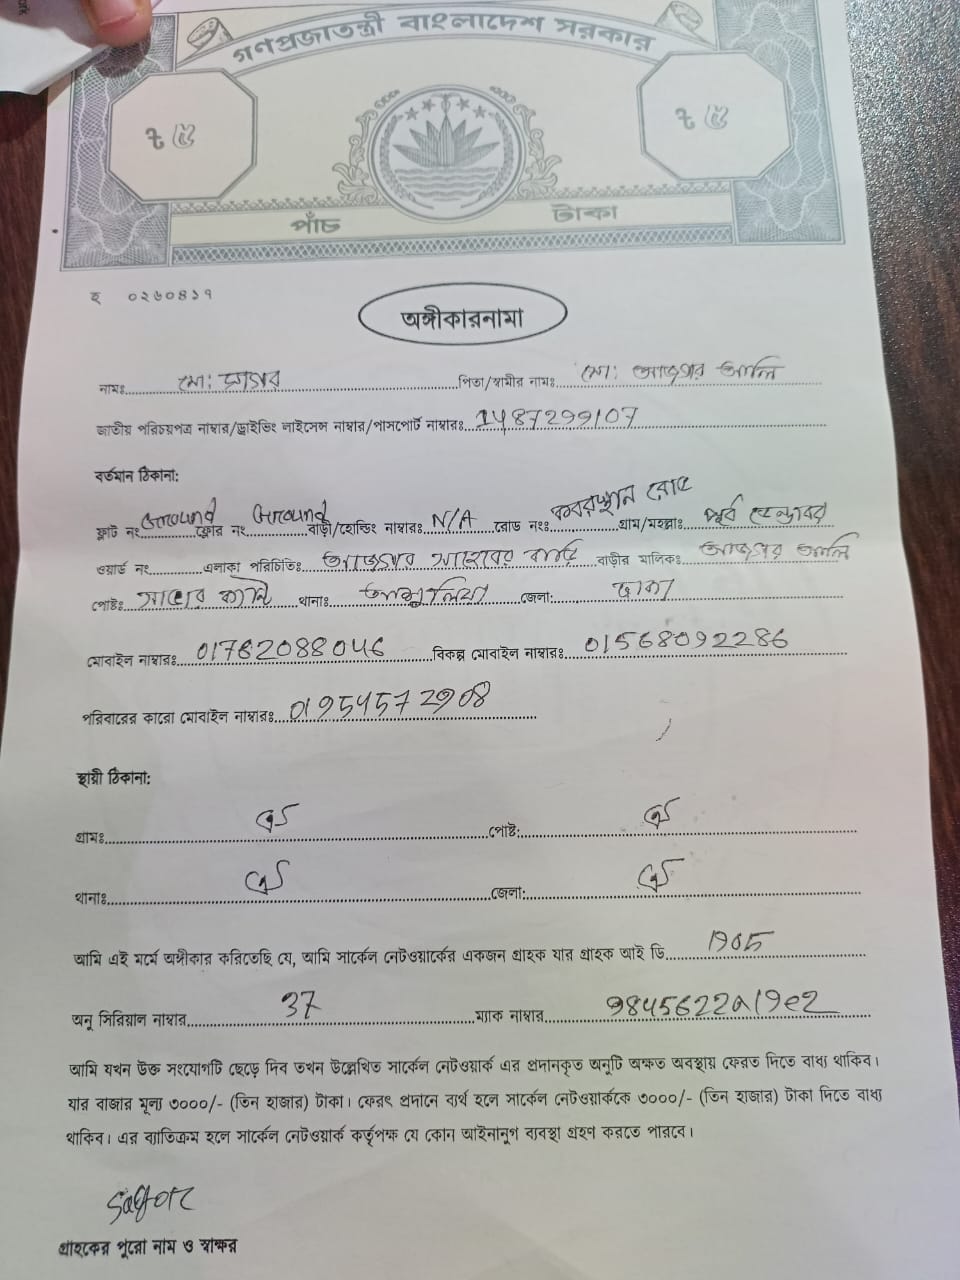 গণপ্রজাতন্ত্রী বাংলাদেশ সরকার
৳ ৫ ৳ ৫
পাঁচ টাকা
হ ০২৬০৪১৭
অঙ্গীকারনামা
নামঃ মো: সাগর পিতা/স্বামীর নামঃ মো: আজগর আলি
জাতীয় পরিচয়পত্র নাম্বার/ড্রাইভিং লাইসেন্স নাম্বার/পাসপোর্ট নাম্বারঃ 1487299107
বর্তমান ঠিকানা:
ফ্লাট নং Ground ফ্লোর নং Ground বাড়ী/হোল্ডিং নাম্বারঃ N/A রোড নংঃ কবরস্থান রোড গ্রাম/মহল্লাঃ পূর্ব ডেন্ডাবর
ওয়ার্ড নং এলাকা পরিচিতিঃ আজগর সাহেবের বাড়ি বাড়ীর মালিকঃ আজগর আলি
পোষ্টঃ থানাঃ আশুলিয়া জেলা: ঢাকা
মোবাইল নাম্বারঃ 01762088046 বিকল্প মোবাইল নাম্বারঃ 01568092286
পরিবারের কারো মোবাইল নাম্বারঃ 01954572908
স্থায়ী ঠিকানা:
গ্রামঃ ঐ পোষ্ট: ঐ
থানাঃ ঐ জেলা: ঐ
আমি এই মর্মে অঙ্গীকার করিতেছি যে, আমি সার্কেল নেটওয়ার্কের একজন গ্রাহক যার গ্রাহক আই ডি 1905
অনু সিরিয়াল নাম্বার 37 ম্যাক নাম্বার 9845622a19e2
আমি যখন উক্ত সংযোগটি ছেড়ে দিব তখন উল্লেখিত সার্কেল নেটওয়ার্ক এর প্রদানকৃত অনুটি অক্ষত অবস্থায় ফেরত দিতে বাধ্য থাকিব।
যার বাজার মূল্য ৩০০০/- (তিন হাজার) টাকা। ফেরৎ প্রদানে ব্যর্থ হলে সার্কেল নেটওয়ার্ককে ৩০০০/- (তিন হাজার) টাকা দিতে বাধ্য
থাকিব। এর ব্যতিক্রম হলে সার্কেল নেটওয়ার্ক কর্তৃপক্ষ যে কোন আইনানুগ ব্যবস্থা গ্রহণ করতে পারবে।
Sagor
গ্রাহকের পুরো নাম ও স্বাক্ষর